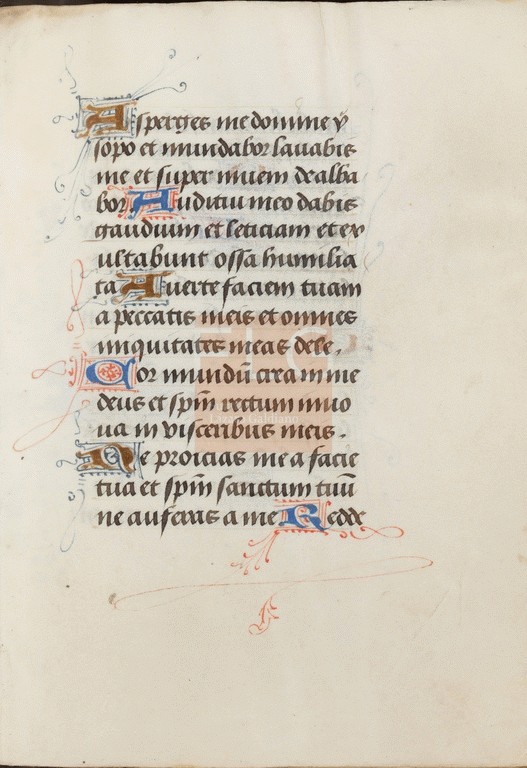 Asperges me domine y
sopo et mundabor lauabis
me et super niuem dealba
bor Auditui meo dabis
gaudium et leticiam et ex
ultabunt ossa humilia
ta Auerte faciem tuam
a peccatis meis et omnes
iniquitates meas dele.
Cor mundū crea in me
deus et spm̄ rectum inno
ua in visceribus meis.
Ne proicias me a facie
tua et spm̄ sanctum tuū
ne auferas a me Redde
FLG
Lázaro Galdiano